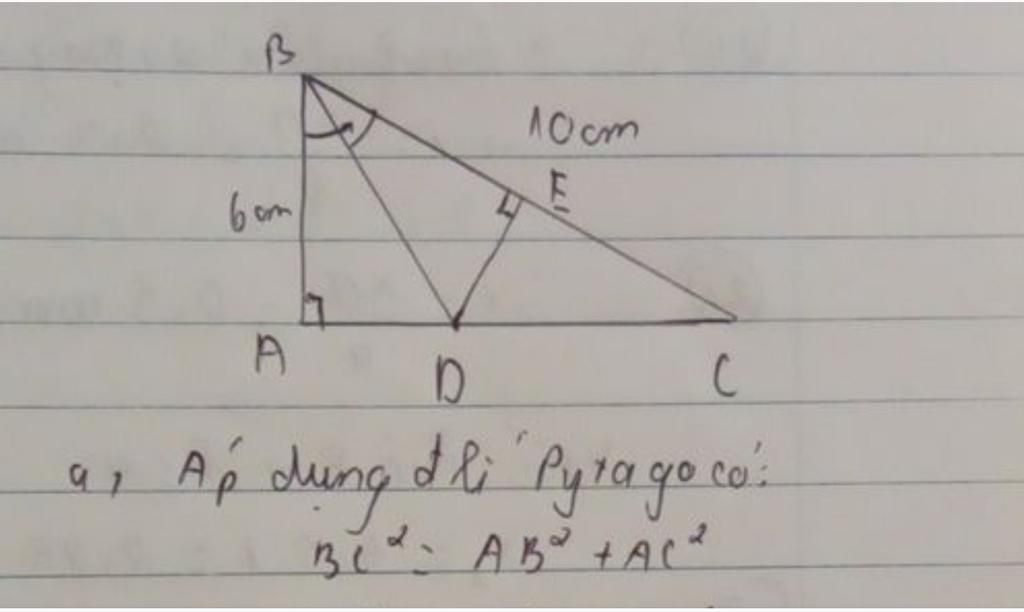 B
10cm
E
6cm
A
D
C
a, Áp dụng đ lí Pytago có:
BC² = AB² + AC²